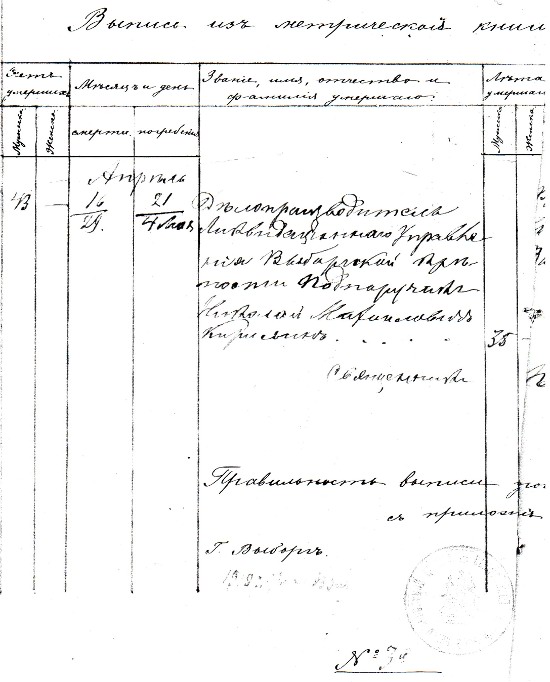 Выпись изъ метрической книги
Счетъ умершихъ
Мѣсяцъ и день
Званіе, имя, отчество и фамилія умершаго.
Лѣта умершаго
Мужска
Женска
смерти.
погребенія
Мужска
Женска
Апрѣль
43
16
29.
21
4 Мая
Дѣлопроизводитель
Ликвидаціоннаго Управле-
нія Выборгской крѣ-
пости Подпоручикъ
Николай Михайловичъ
35
Священникъ
Правильность выписи
съ прилож
Г. Выборгъ.
№